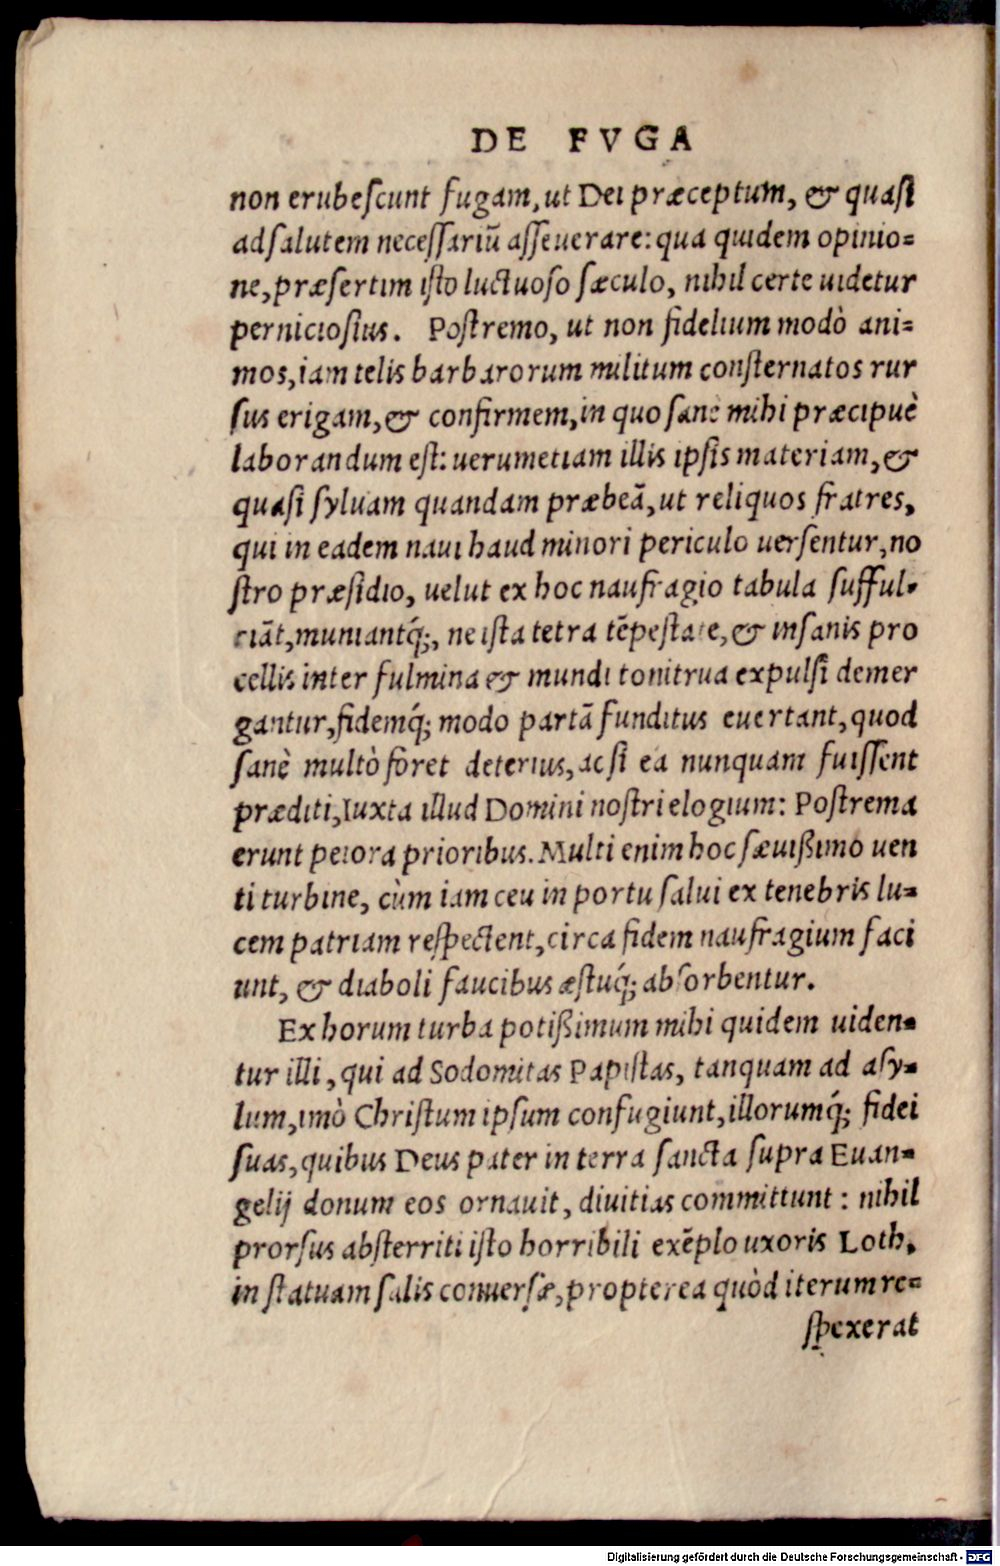 DE FVGA
non erubeſcunt fugam, ut Dei præceptum, & quaſi
ad ſalutem neceſſariũ aſſeuerare: qua quidem opinio=
ne, præſertim iſto luctuoſo ſæculo, nihil certe uidetur
pernicioſius. Poſtremo, ut non fidelium modò ani=
mos, iam telis barbarorum militum conſternatos rur
ſus erigam, & confirmem, in quo ſane mihi præcipuè
laborandum eſt: uerumetiam illis ipſis materiam, &
quaſi ſyluam quandam præbeã, ut reliquos fratres,
qui in eadem naui haud minori periculo uerſentur, no
ſtro præſidio, uelut ex hoc naufragio tabula ſufful=
ciãt, muniantq́;, ne iſta tetra tẽpeſtate, & inſanis pro
cellis inter fulmina & mundi tonitrua expulſi demer
gantur, fidemq́; modo partã funditus euertant, quod
ſanè multò foret deterius, ac ſi ea nunquam fuiſſent
præditi, Iuxta illud Domini noſtri elogium: Poſtrema
erunt peiora prioribus. Multi enim hoc ſæuißimo uen
ti turbine, cùm iam ceu in portu ſalui ex tenebris lu=
cem patriam reſpectent, circa fidem naufragium faci
unt, & diaboli faucibus æſtuq́; abſorbentur.
Ex horum turba potißimum mihi quidem uiden=
tur illi, qui ad Sodomitas Papiſtas, tanquam ad aſy=
lum, imò Chriſtum ipſum confugiunt, illorumq́; fidei
ſuas, quibus Deus pater in terra ſancta ſupra Euan=
gelij donum eos ornauit, diuitias committunt: nihil
prorſus abſterriti iſto horribili exẽplo uxoris Loth,
in ſtatuam ſalis conuerſæ, propterea quòd iterum re=
ſpexerat
Digitalisierung gefördert durch die Deutsche Forschungsgemeinschaft - DFG